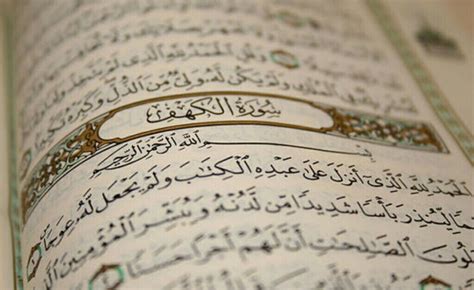 وَقُلِ ٱلْحَمْدُ لِلَّهِ ٱلَّذِى لَمْ يَتَّخِذْ
وَلَمْ يَكُن لَّهُۥ وَلِىٌّ مِّنَ ٱلذُّلِّ وَكَبِّرْهُ تَكْبِيرًا
سُورَةُ الْكَهْفِ
بِسْمِ ٱللَّهِ ٱلرَّحْمَٰنِ ٱلرَّحِيمِ
ٱلْحَمْدُ لِلَّهِ ٱلَّذِىٓ أَنزَلَ عَلَىٰ عَبْدِهِ ٱلْكِتَٰبَ وَلَمْ يَجْعَل لَّهُۥ عِوَجَا
لِّيُنذِرَ بَأْسًا شَدِيدًا مِّن لَّدُنْهُ وَيُبَشِّرَ ٱلْمُؤْمِنِينَ
لُونَ ٱلصَّٰلِحَٰتِ أَنَّ لَهُمْ أَجْرًا حَسَنًا